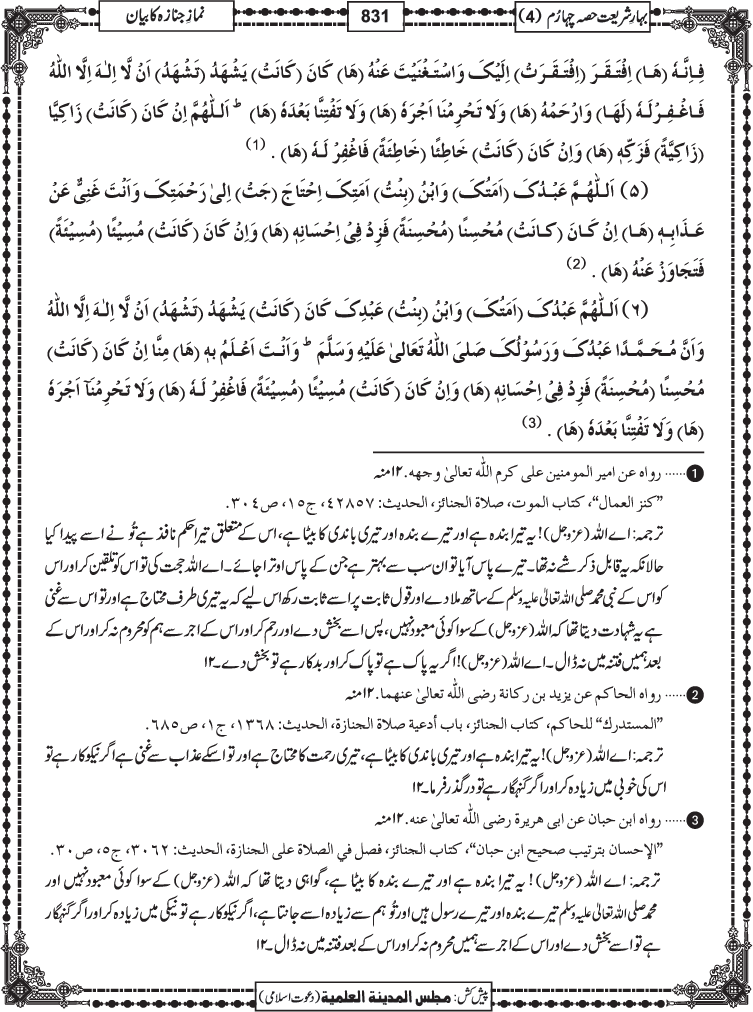 بہارِ شریعت حصہ چہارم (4)
831
نمازِ جنازہ کا بیان
فَـاِنَّـهٗ (هَـا) اِفْتَـقَـرَ (اِفْتَـقَـرَتْ) اِلَيْکَ وَاسْتَـغْـنَيْتَ عَنْهُ (هَا) كَانَ (كَانَتْ) يَشْهَدُ (تَشْهَدُ) اَنْ لَّا اِلٰـهَ اِلَّا اللّٰهُ
فَـاغْـفِـرْ لَـهٗ (لَهَـا) وَارْحَمْهُ (هَا) وَلَا تَحْرِمْنَا اَجْرَهٗ (هَا) وَلَا تَفْتِنَّا بَعْدَهٗ (هَا) ط اَللّٰهُمَّ اِنْ كَانَ (كَانَتْ) زَاكِيًا
(زَاكِيَةً) فَزَكِّهِ (هَا) وَاِنْ كَانَ (كَانَتْ) خَاطِئًا (خَاطِئَةً) فَاغْفِرْ لَـهٗ (هَا) . (1)
(۵) اَللّٰهُمَّ عَبْدُکَ (اَمَتُکَ) وَابْنُ (بِنْتُ) اَمَتِکَ اِحْتَاجَ (جَتْ) اِلىٰ رَحْمَتِکَ وَاَنْتَ غَنِيٌّ عَنْ
عَـذَابِـهٖ (هَـا) اِنْ كَـانَ (كَـانَتْ) مُحْسِنًا (مُحْسِنَةً) فَزِدْ فِيْ اِحْسَانِهٖ (هَا) وَاِنْ كَانَ (كَانَتْ) مُسِيْئًا (مُسِيْئَةً)
فَتَجَاوَزْ عَنْهُ (هَا) . (2)
(۶) اَللّٰهُمَّ عَبْدُکَ (اَمَتُکَ) وَابْنُ (بِنْتُ) عَبْدِکَ كَانَ (كَانَتْ) يَشْهَدُ (تَشْهَدُ) اَنْ لَّا اِلـٰهَ اِلَّا اللّٰهُ
وَاَنَّ مُـحَـمَّـدًا عَبْدُکَ وَرَسُوْلُکَ صَلَّى اللّٰهُ تَعَالىٰ عَلَيْهِ وَسَلَّمَ ط وَاَنْـتَ اَعْلَمُ بِهٖ (هَا) مِنَّا اِنْ كَانَ (كَانَتْ)
مُحْسِنًا (مُحْسِنَةً) فَزِدْ فِيْ اِحْسَانِهٖ (هَا) وَاِنْ كَانَ (كَانَتْ) مُسِيْئًا (مُسِيْئَةً) فَاغْفِرْ لَـهٗ (هَا) وَلَا تَحْرِمْنَآ اَجْرَهٗ
(هَا) وَلَا تَفْتِنَّا بَعْدَهٗ (هَا) . (3)
1 ...... رواه عن امير المومنين على كرم اللّٰه تعالىٰ وجهه. ۱۲منہ
”كنز العمال“، كتاب الموت، صلاة الجنائز، الحديث: ٤٢٨٥٧، ج١٥، ص٣٠٤.
ترجمہ: اے اللہ (عزوجل)! یہ تیرا بندہ ہے اور تیرے بندہ اور تیری باندی کا بیٹا ہے، اس کے متعلق تیرا حکم نافذ ہے تُو نے اسے پیدا کیا
حالانکہ یہ قابل ذکر شے نہ تھا۔ تیرے پاس آیا تو ان سب سے بہتر ہے جن کے پاس اوترا جائے۔ اے اللہ حجت کی تو اس کو تلقین کر اور اس
کو اس کے نبی محمد صلی اللہ تعالیٰ علیہ وسلم کے ساتھ ملا دے اور قول ثابت پر اسے ثابت رکھ اس لیے کہ یہ تیری طرف محتاج ہے اور تو اس سے غنی
ہے یہ شہادت دیتا تھا کہ اللہ (عزوجل) کے سوا کوئی معبود نہیں، پس اسے بخش دے اور رحم کر اور اس کے اجر سے ہم کو محروم نہ کر اور اس کے
بعد ہمیں فتنہ میں نہ ڈال۔ اے اللہ (عزوجل)! اگر یہ پاک ہے تو پاک کر اور بدکار ہے تو بخش دے۔ ۱۲
2 ...... رواه الحاكم عن يزيد بن ركانة رضى اللّٰه تعالىٰ عنهما. ۱۲منہ
”المستدرك“ للحاكم، كتاب الجنائز، باب أدعية صلاة الجنازة، الحديث: ١٣٦٨، ج١، ص٦٨٥.
ترجمہ: اے اللہ (عزوجل)! یہ تیرا بندہ ہے اور تیری باندی کا بیٹا ہے، تیری رحمت کا محتاج ہے اور تو اسکے عذاب سے غنی ہے اگر نیکوکار ہے تو
اس کی خوبی میں زیادہ کر اور اگر گنہگار ہے تو درگذر فرما۔ ۱۲
3 ...... رواه ابن حبان عن ابى هريرة رضى اللّٰه تعالىٰ عنه. ۱۲منہ
”الإحسان بترتيب صحيح ابن حبان“، كتاب الجنائز، فصل في الصلاة على الجنازة، الحديث: ٣٠٦٢، ج٥، ص٣٠.
ترجمہ: اے اللہ (عزوجل)! یہ تیرا بندہ ہے اور تیرے بندہ کا بیٹا ہے، گواہی دیتا تھا کہ اللہ (عزوجل) کے سوا کوئی معبود نہیں اور
محمد صلی اللہ تعالیٰ علیہ وسلم تیرے بندہ اور تیرے رسول ہیں اور تُو ہم سے زیادہ اسے جانتا ہے، اگر نیکوکار ہے تو نیکی میں زیادہ کر اور اگر گنہگار
ہے تو اسے بخش دے اور اس کے اجر سے ہمیں محروم نہ کر اور اس کے بعد فتنہ میں نہ ڈال۔ ۱۲
پیش کش: مجلس المدينة العلمية (دعوتِ اسلامی)